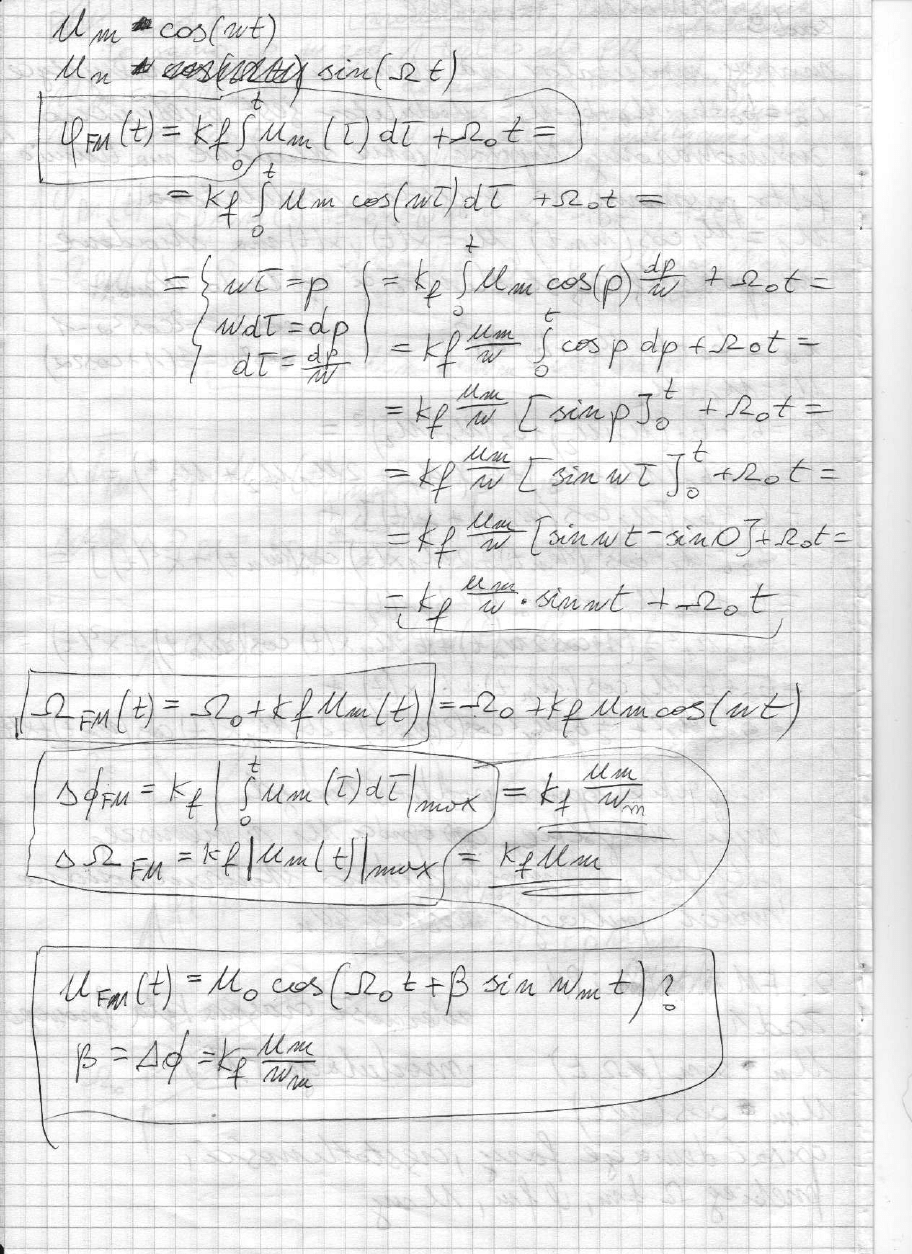 u_m cos(wt)
u_n sin(Ωt)
φ_FM(t) = k_f ∫₀ᵗ u_m(τ)dτ + Ω₀t =
= k_f ∫₀ᵗ u_m cos(wτ)dτ + Ω₀t =
= { wτ = p } = k_f ∫₀ᵗ u_m cos(p) dp/w + Ω₀t =
wdτ = dp
dτ = dp/w
= k_f u_m/w ∫₀ᵗ cos p dp + Ω₀t =
= k_f u_m/w [sin p]₀ᵗ + Ω₀t =
= k_f u_m/w [sin wτ]₀ᵗ + Ω₀t =
= k_f u_m/w [sin wt - sin 0] + Ω₀t =
= k_f u_m/w · sin wt + Ω₀t
Ω_FM(t) = Ω₀ + k_f u_m(t) = Ω₀ + k_f u_m cos(wt)
Δϕ_FM = k_f |∫₀ᵗ u_m(τ)dτ|max = k_f u_m/w_m
ΔΩ_FM = k_f |u_m(t)|max = k_f u_m
u_FM(t) = u₀ cos(Ω₀t + β sin w_m t) ?
β = Δϕ = k_f u_m/w_m